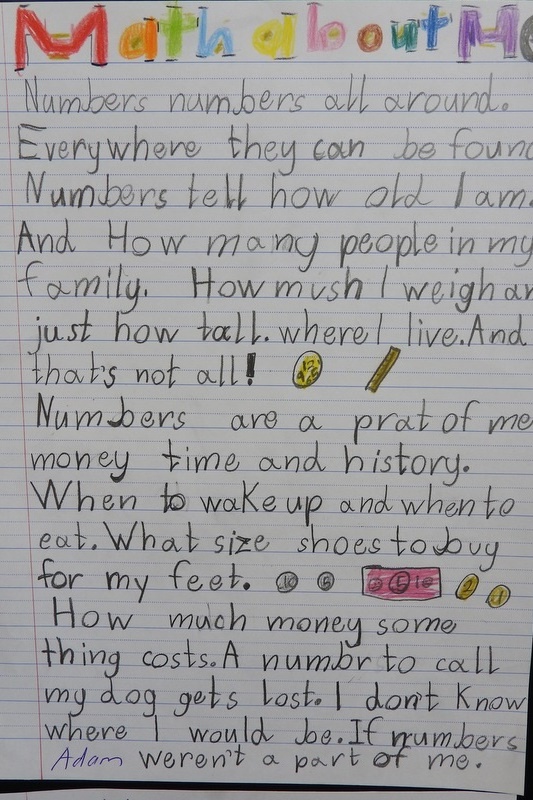 Math about Me
Numbers numbers all around.
Everywhere they can be found
Numbers tell how old I am.
And How many people in my
family. How mush I weigh an
just how tall. where I live. And
that's not all!
Numbers are a prat of me
money time and history.
When to wake up and when to
eat. What size shoes to buy
for my feet. 10 5 5 2 1
How much money some
thing costs. A numbr to call
my dog gets lost. I don't Know
where I would be. If numbers
Adam weren't a part of me.